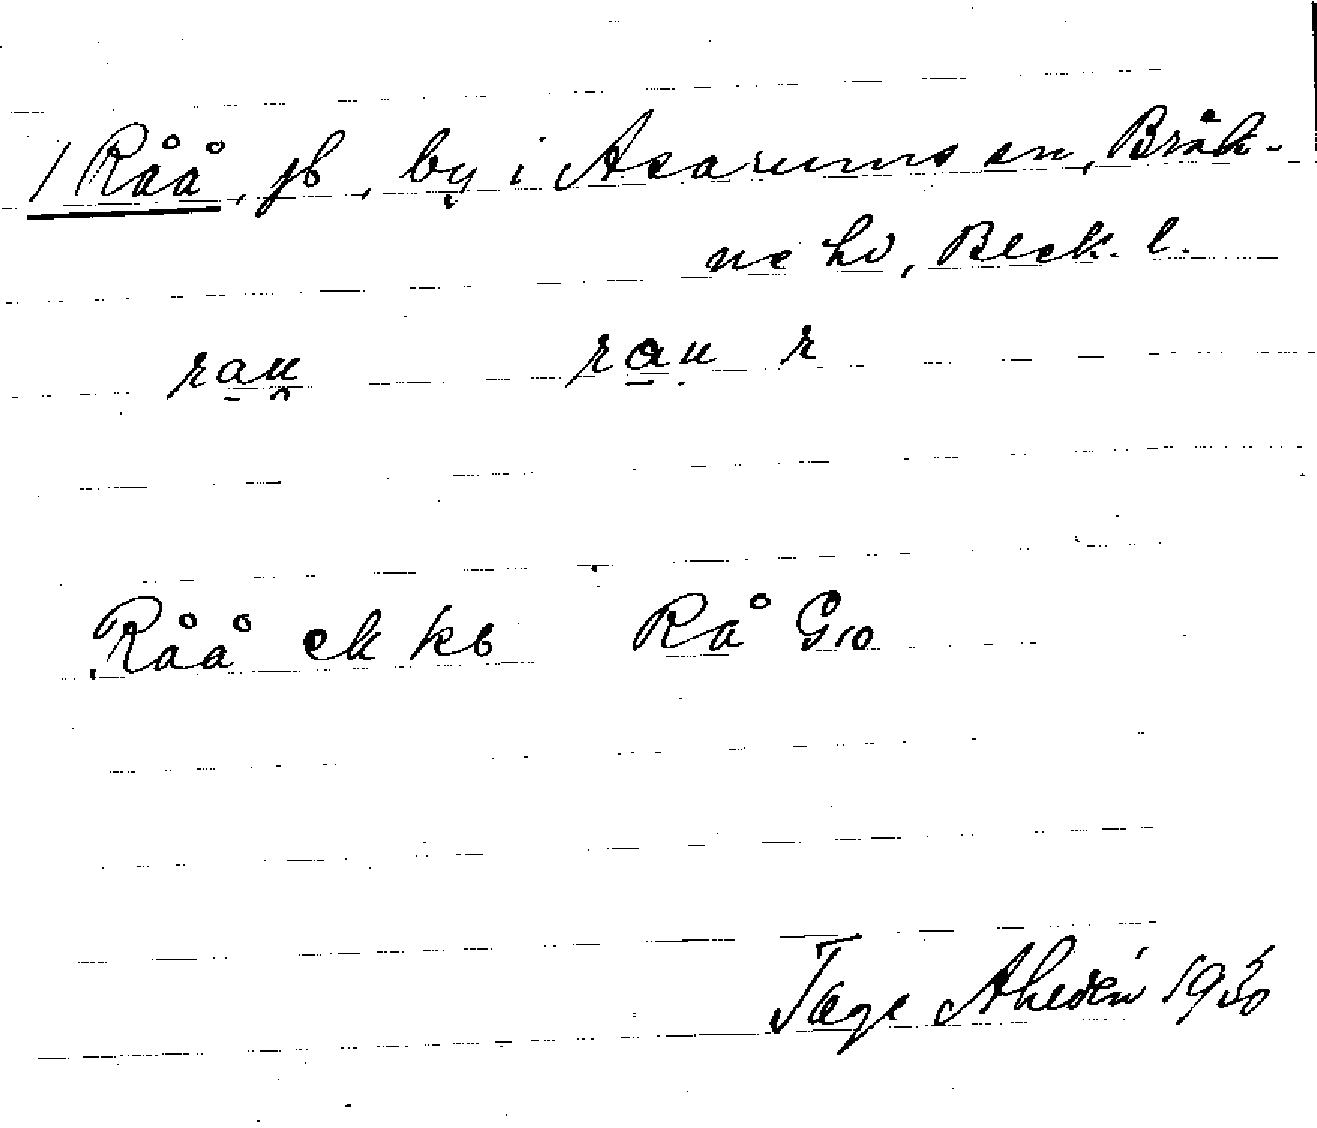 1 Råå, jb, by i Asarums sn, Bräk-
ne hd, Blek. l.
rau rau r
Råå ek kb Rå G10
Tage Ahldén 1930